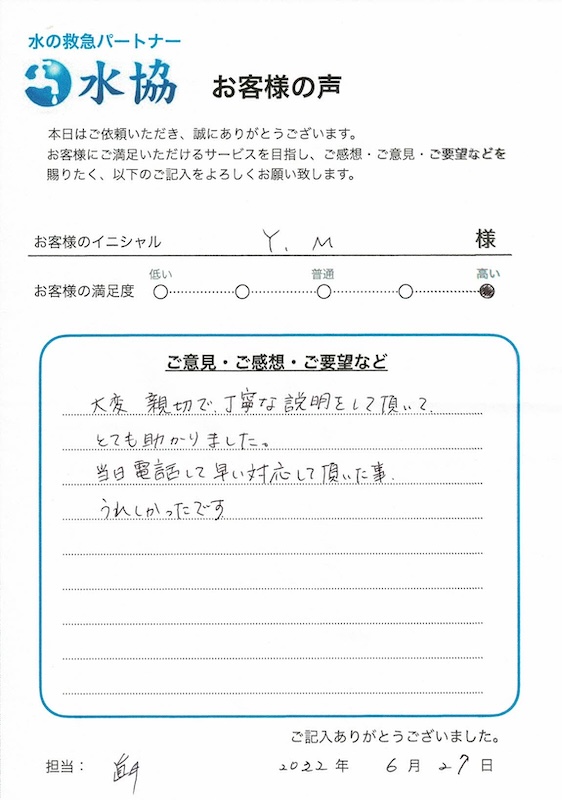 水の救急パートナー
水協 お客様の声
本日はご依頼いただき、誠にありがとうございます。
お客様にご満足いただけるサービスを目指し、ご感想・ご意見・ご要望などを
賜りたく、以下のご記入をよろしくお願い致します。
お客様のイニシャル Y. M 様
低い 普通 高い
お客様の満足度
ご意見・ご感想・ご要望など
大変 親切で、丁寧な説明をして頂いて、
とても助かりました。
当日電話して早い対応して頂いた事、
うれしかったです
ご記入ありがとうございました。
担当: 2022年 6月 27日